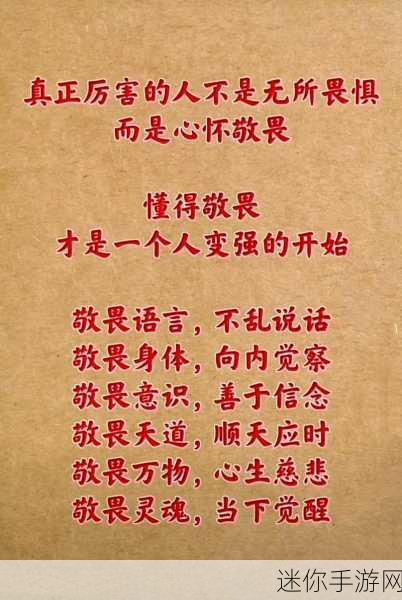 真正厉害的人不是无所畏惧
而是心怀敬畏
懂得敬畏
才是一个人变强的开始
敬畏语言，不乱说话
敬畏身体，向内觉察
敬畏意识，善于信念
敬畏天道，顺天应时
敬畏万物，心生慈悲
敬畏灵魂，当下觉醒
迷你手游网